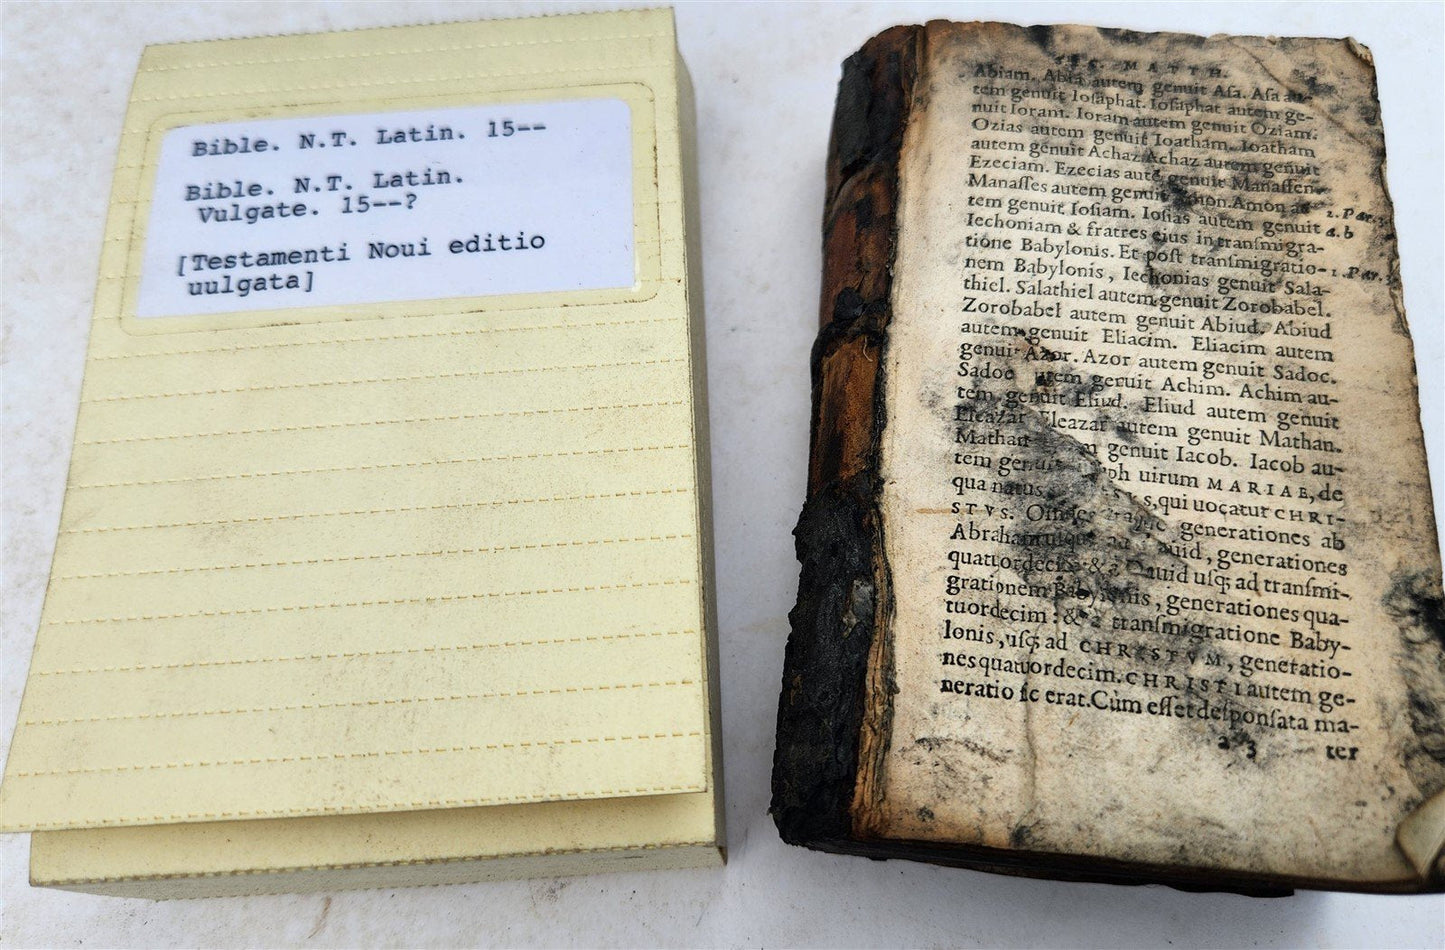 Bible. N.T. Latin. 15--
Bible. N.T. Latin.
Vulgate. 15--?
[Testamenti Noui editio
uulgata]
MATTH.
Abiam. Abia autem genuit Aſa. Aſa au-
tem genuit Ioſaphat. Ioſaphat autem ge-
nuit Ioram. Ioram autem genuit Oziam.
Ozias autem genuit Ioatham. Ioatham
autem genuit Achaz. Achaz autem genuit
Ezeciam. Ezecias autē genuit Manaſſen.
Manaſſes autem genuit Amon. Amon au- 1. Par. 3.
tem genuit Ioſiam. Ioſias autem genuit a. b
Iechoniam & fratres eius in tranſmigra-
tione Babylonis. Et poſt tranſmigratio- 1. Par. 3.
nem Babylonis, Iechonias genuit Sala-
thiel. Salathiel autem genuit Zorobabel.
Zorobabel autem genuit Abiud. Abiud
autem genuit Eliacim. Eliacim autem
genuit Azor. Azor autem genuit Sadoc.
Sadoc autem genuit Achim. Achim au-
tem genuit Eliud. Eliud autem genuit
Eleazar Eleazar autem genuit Mathan.
Mathan genuit Iacob. Iacob au-
tem genuit uirum MARIAE, de
qua natus qui uocatur CHRI-
STVS. Omnes generationes ab
Abraham uſque ad Dauid, generationes
quatuordecim: & à Dauid uſq; ad tranſmi-
grationem Babylonis, generationes qua-
tuordecim: & à tranſmigratione Baby-
lonis, uſq; ad CHRISTVM, generatio-
nes quatuordecim. CHRISTI autem ge-
neratio ſic erat. Cùm eſſet deſponſata ma-
a 3 ter